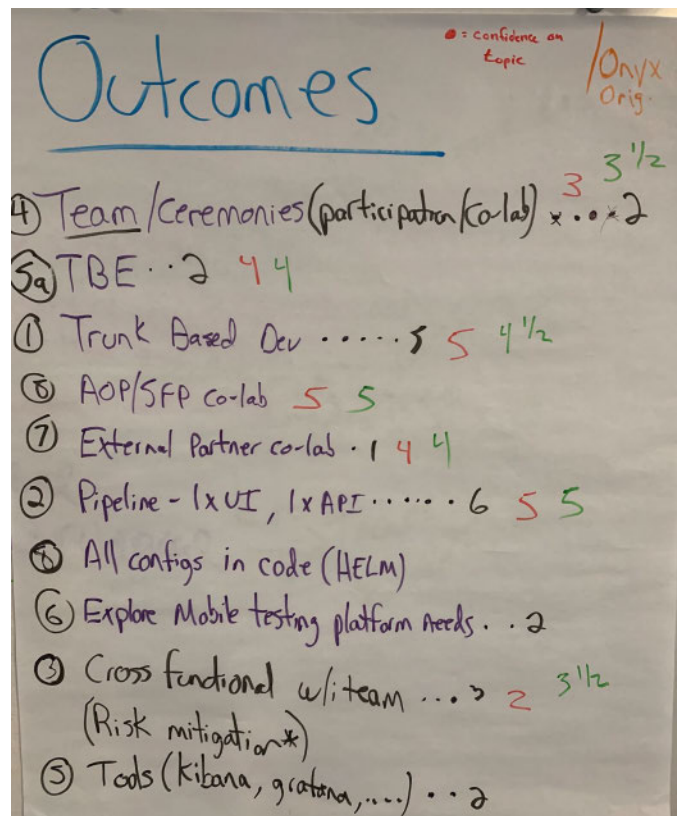 ● = confidence on
topic
/Onyx
Orig.
Outcomes
3 3 1/2
④ Team/Ceremonies (participation/Co-lab) x . . . x 2
5a TBE . . 2 4 4
① Trunk Based Dev . . . . . 5 5 4 1/2
⑧ AOP/SFP co-lab 5 5
⑦ External Partner co-lab . 1 4 4
② Pipeline - 1x UI, 1x API . . . . . . 6 5 5
⑧ All configs in code (HELM)
⑥ Explore Mobile testing platform needs . . 2
③ Cross functional w/i team . . . 3 2 3 1/2
(Risk mitigation*)
⑤ Tools (kibana, grafana, ....) . . 2